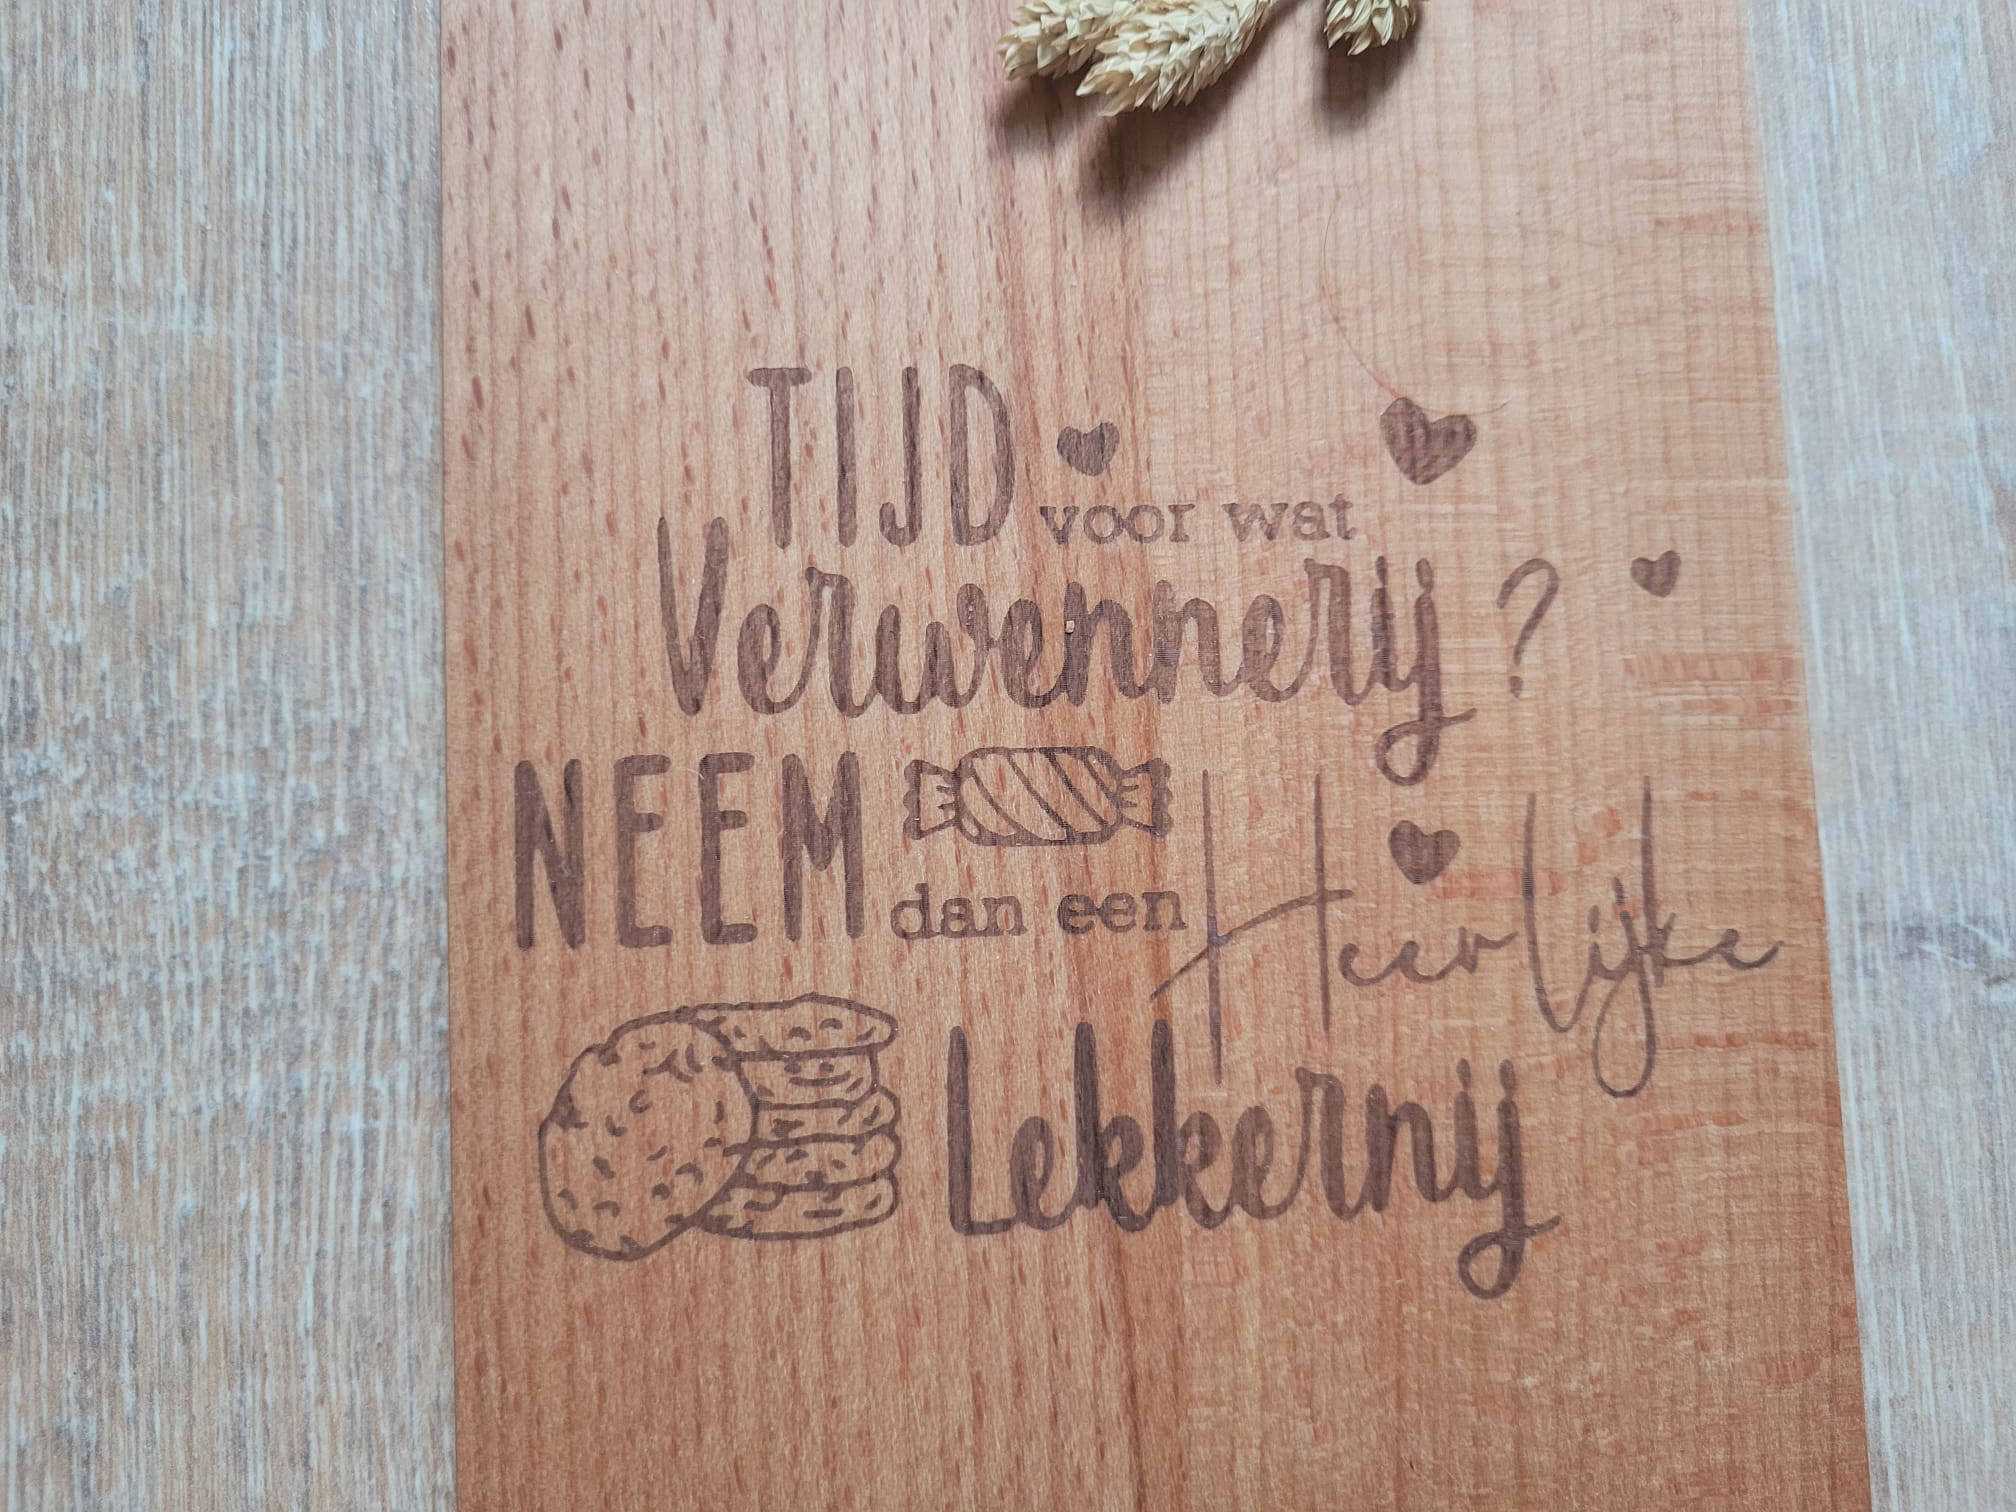 TIJD voor wat
Verwennerij ?
NEEM dan een Heerlijke
Lekkernij